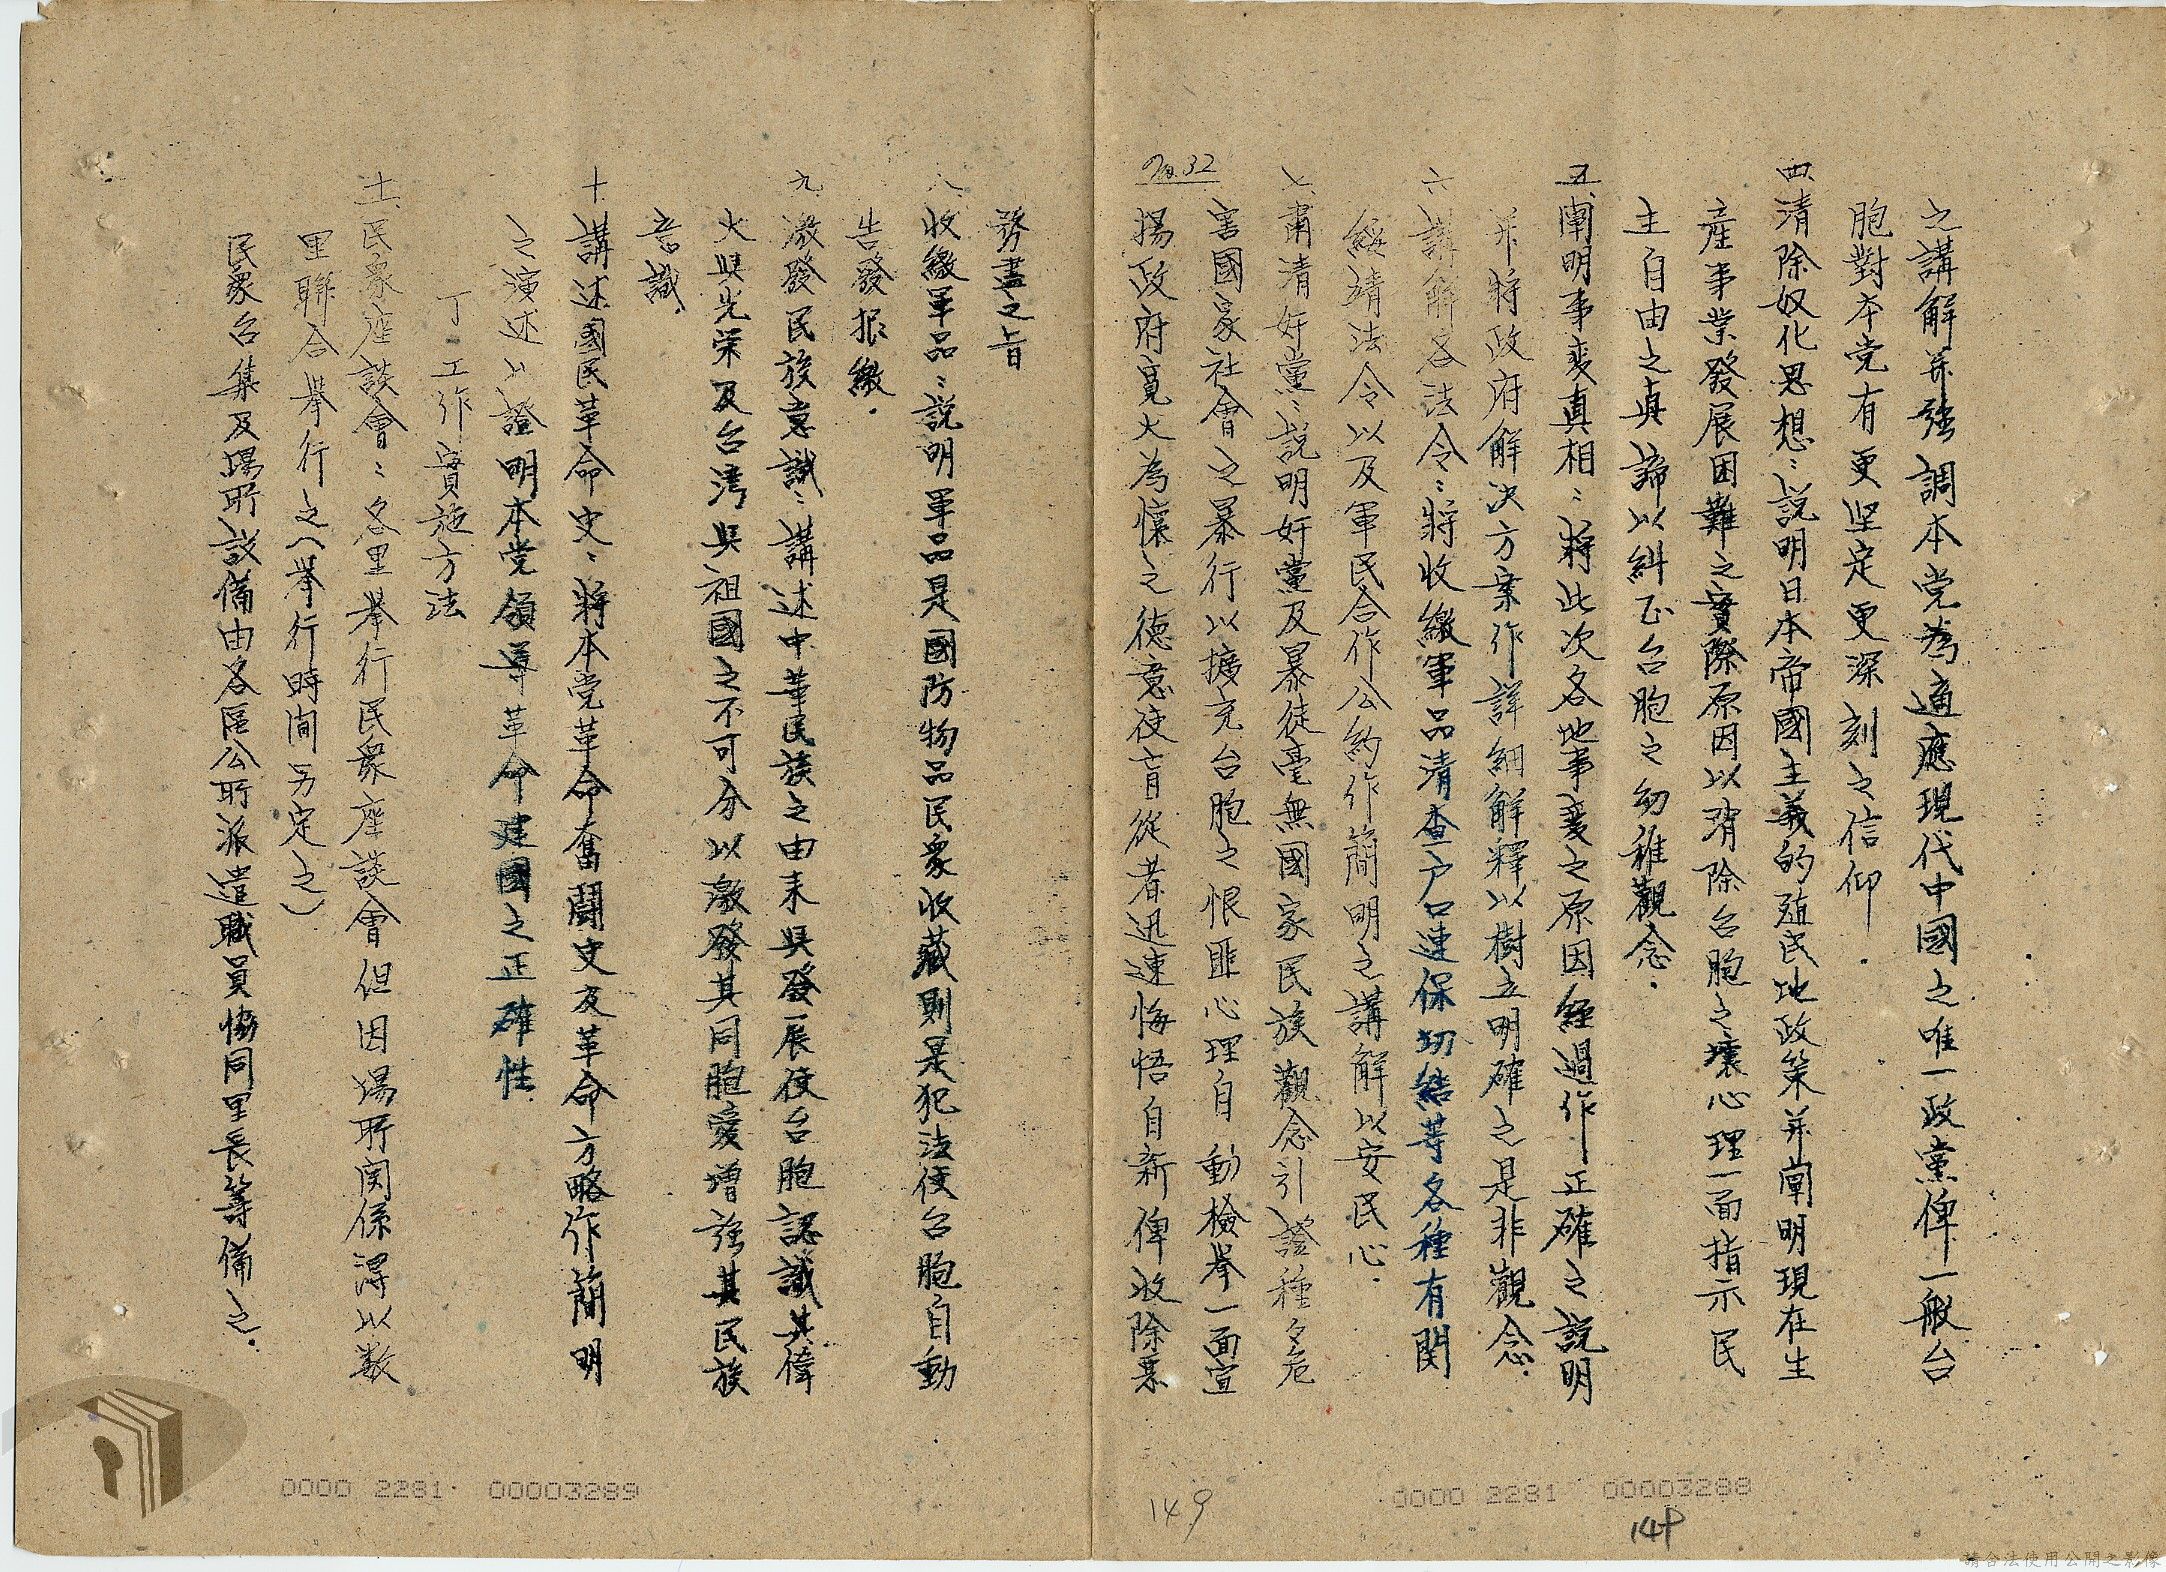 之講解并強調本党為適應現代中國之唯一政黨俾一般台
胞對本党有更坚定更深刻之信仰.
四、清除奴化思想：説明日本帝國主義的殖民地政策并闡明現在生
產事業發展困難之實際原因以消除台胞之壞心理一面指示民
主自由之真諦以糾正台胞之幼稚觀念.
五、闡明事変真相：將此次各地事变之原因經過作正確之説明
并將政府解決方案作詳細解釋以樹立明確之是非觀念.
六、講解各法令：將收繳軍品清查户口連保切結等各種有関
綏靖法令以及軍民合作公約作簡明之講解以安民心.
七、肅清奸黨：説明奸黨及暴徒毫無國家民族觀念引證種々危
害國家社會之暴行以擴充台胞之恨匪心理自動檢举一面宣
No.32
揚政府寬大為懷之德意使盲從者迅速悔悟自新俾收除惡
務盡之旨
八、收繳軍品：説明軍品是國防物品民衆收藏則是犯法使台胞自動
告發报繳.
九、激發民族意識：講述中華民族之由来與發展使台胞認識其偉
大與光荣及台湾與祖國之不可分以激發其同胞愛增強其民族
意識.
十、講述國民革命史：將本党革命奮鬪史及革命方略作簡明
之演述以證明本党領導革命建國之正確性
丁 工作實施方法
十一、民衆座談會：各里举行民衆座談會但因場所関係得以数
里聯合举行之（举行時間另定之）
民衆召集及場所設備由各區公所派遣職員協同里長等備之.
0000 2281 00003289
149
0000 2281 00003288
148
請合法使用公開之影像